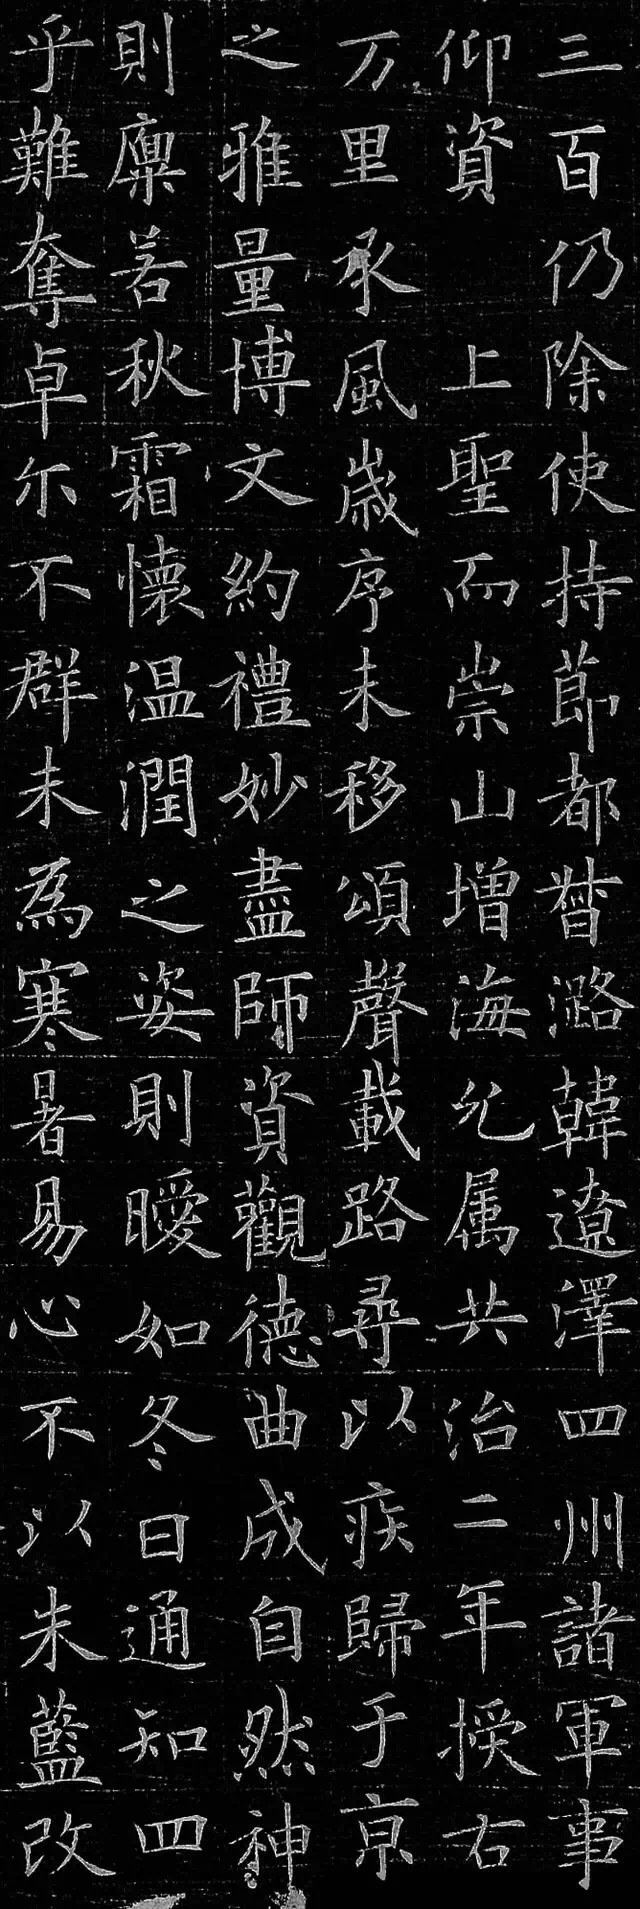 三百仍除使持節都督潞韓遼澤四州諸軍事
仰資 上聖而崇山增海化属共治二年授右
万里承風歲序未移頌聲載路尋以疾歸于京
之雅量博文約禮妙盡師資觀德曲成自然神
則廩若秋霜懷温潤之姿則曖如冬日通知四
乎難奪卓尔不群未為寒暑易心不以朱藍改